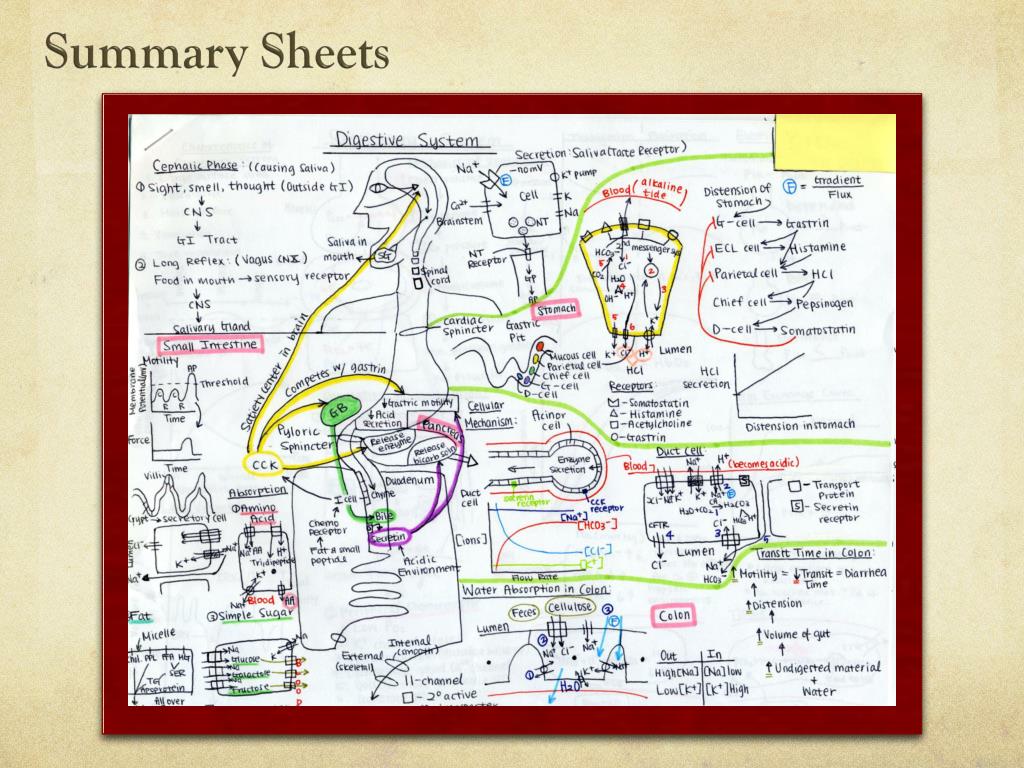 Summary Sheets
Digestive System
Cephalic Phase: (causing Saliva)
① Sight, smell, thought (Outside GI)
↓
CNS
↓
GI Tract
② Long Reflex: (Vagus (NX)
Food in mouth → sensory receptor
↓
CNS
↓
Salivary Gland
Saliva in
mouth
SG
Brainstem
Spinal
cord
Secretion: Saliva (Taste Receptor)
Na+
Ca2+
Cell
K+ pump
K
Na
NT
NT
Receptor
GP
AP
Stomach
Blood (alkaline
tide)
HCO3-
2nd messengers
Cl-
CO2
H2O
OH-
H+
K+ Cl- H+
Lumen
HCl
Distension of
Stomach
F = Gradient
Flux
G-cell → Gastrin
ECL cell → Histamine
Parietal cell → HCl
Chief cell → Pepsinogen
D-cell → Somatostatin
Cardiac
Sphincter
Gastric
Pit
Mucous cell
Parietal cell
Chief cell
G-cell
D-cell
Receptors:
- Somatostatin
- Histamine
- Acetylcholine
- Gastrin
HCl
secretion
Distension in stomach
Small Intestine
Motility
Membrane
Potential (mv)
AP
Threshold
Time
Force
Time
Satiety center in brain
Competes w/ gastrin
↓ Gastric motility
↓ Acid
secretion
GB
Pyloric
Sphincter
CCK
Release
enzyme
Pancreas
Release
bicarb soln
Duodenum
I cell
chyme
Bile
Secretin
Chemo
Receptor
Fat & small
peptide
Acidic
Environment
Cellular
Mechanism:
Acinor
cell
Enzyme
Secretion
Duct
cell
secretin
receptor
CCK
receptor
[ions]
[Na+]
[HCO3-]
[Cl-]
[K+]
Flow Rate
Duct cell:
Blood
(becomes acidic)
H2O+CO2
H2CO3
CFTR
Lumen
Cl-
Na+
HCO3-
- Transport
Protein
S - Secretin
receptor
Villi
Crypt → Secretory cell
Cl-
K+
Na+
Absorption
① Amino
Acid
Na+ AA
H+
Tri/dipeptide
K+
Na+
Blood
AA
Fat
Micelle
TG
Apoprotein
② Simple Sugar
Na
Glucose
Galactose
Fructose
K+
Na
Internal
(smooth)
External
(skeletal)
11-channel
- 2° active
Water Absorption in Colon:
Feces
Cellulose
Lumen
Na+
Cl-
Na+
K+
H2O
Colon
Out | In
High[Na] | [Na]low
Low[K+] | [K+]High
Transit Time in Colon:
↑ Motility = ↓ Transit = Diarrhea
Time
↑ Distension
↑ Volume of gut
↑ Undigested material
+
Water